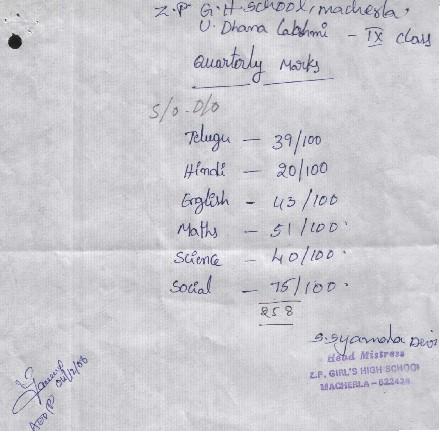 Z.P G.H. School, macherla.
U. Dhana Lakshmi - IX class
Quarterly Marks
S/o. D/o
Telugu - 39/100
Hindi - 20/100
English - 43/100
Maths - 51/100
Science - 40/100
Social - 75/100
258
S. Syamala Devi
Head Mistress
Z.P. GIRL'S HIGH SCHOOL
MACHERLA - 522426